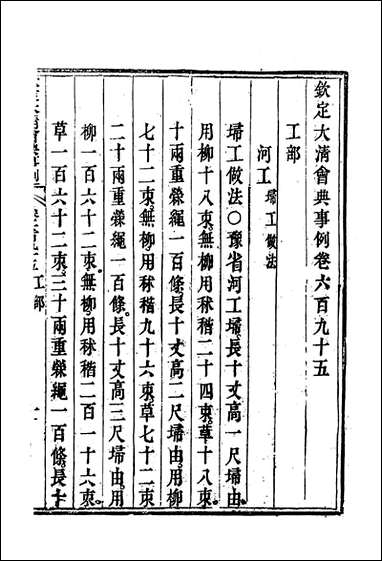 欽定大清會典事例卷六百九十五
工部
河工 埽工做法
埽工做法〇豫省河工埽長十丈高一尺埽由
用柳十八束。無柳用秫稭二十四束。草十八束。
十兩重檾繩一百條。長十丈高二尺埽由。用柳
七十二束。無柳。用秫稭九十六束。草七十二束
二十兩重檾繩一百條。長十丈高三尺埽由。用
柳一百六十二束。無柳。用秫稭二百一十六束。
草一百六十二束。三十兩重檾繩一百條。長十
工部